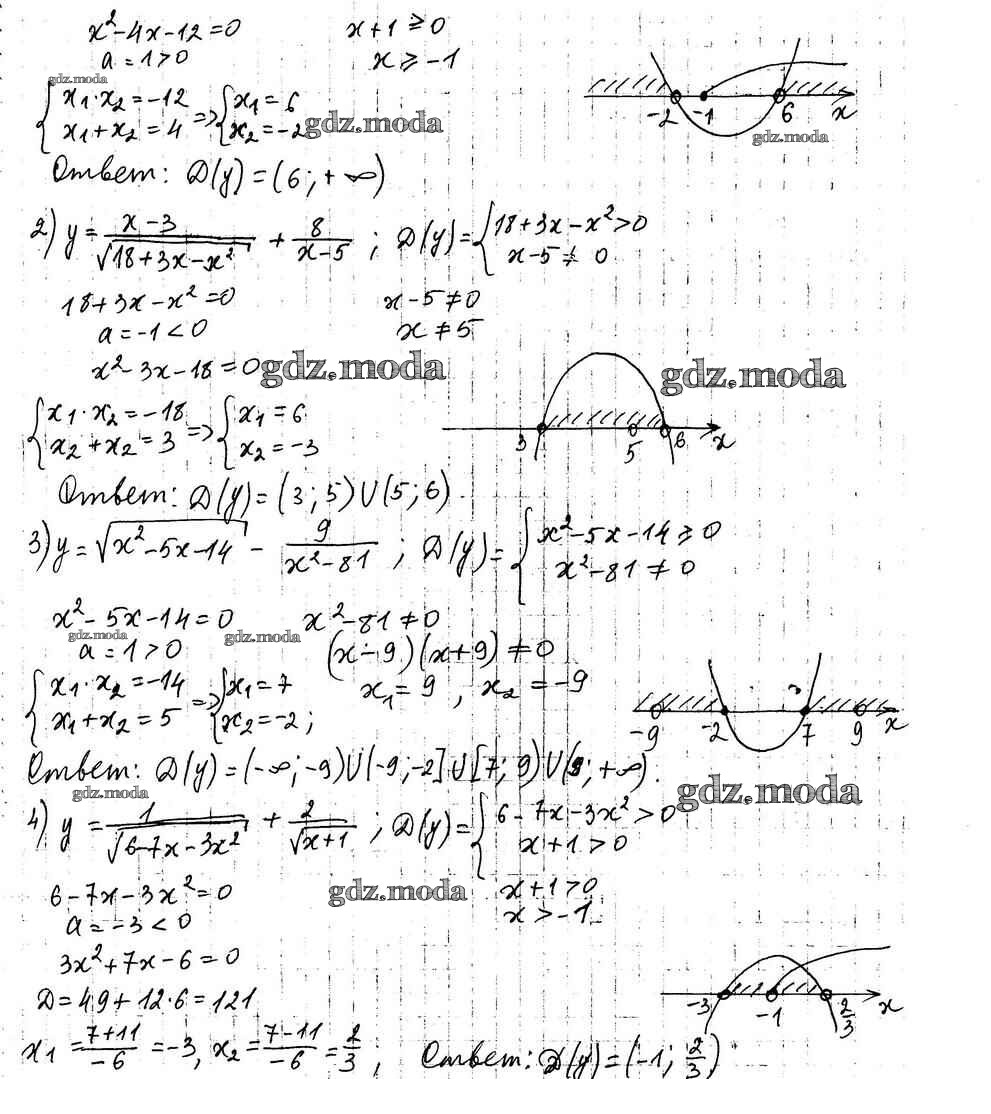 x²-4x-12=0    x+1⩾0
a=1>0    x⩾-1
gdz.moda
{x₁·x₂=-12 => {x₁=6
x₁+x₂=4    x₂=-2 gdz.moda
-2 -1 6 x
gdz.moda
Ответ: D(y)=(6;+∞)
2) y=(x-3)/√(18+3x-x²) + 8/(x-5) ; D(y)={18+3x-x²>0
x-5≠0
18+3x-x²=0    x-5≠0
a=-1<0    x≠5
x²-3x-18=0 gdz.moda gdz.moda
{x₁·x₂=-18 => {x₁=6
x₂+x₂=3    x₂=-3
3 5 6 x
Ответ: D(y)=(3;5)∪(5;6).
3) y=√(x²-5x-14) - 9/(x²-81) ; D(y)={x²-5x-14⩾0
x²-81≠0
x²-5x-14=0    x²-81≠0
gdz.moda gdz.moda
a=1>0    (x-9)(x+9)≠0
{x₁·x₂=-14 => {x₁=7    x₁=9, x₂=-9
x₁+x₂=5    x₂=-2;
-9 -2 7 9 x
Ответ: D(y)=(-∞;-9)∪(-9;-2]∪[7;9)∪(9;+∞).
gdz.moda gdz.moda
4) y=1/√(6-7x-3x²) + 2/√(x+1) ; D(y)={6-7x-3x²>0
x+1>0
6-7x-3x²=0 gdz.moda x+1>0
a=-3<0    x>-1
3x²+7x-6=0
D=49+12·6=121
-3 -1 2/3 x
x₁=(7+11)/-6=-3, x₂=(7-11)/-6=2/3; Ответ: D(y)=(-1;2/3)